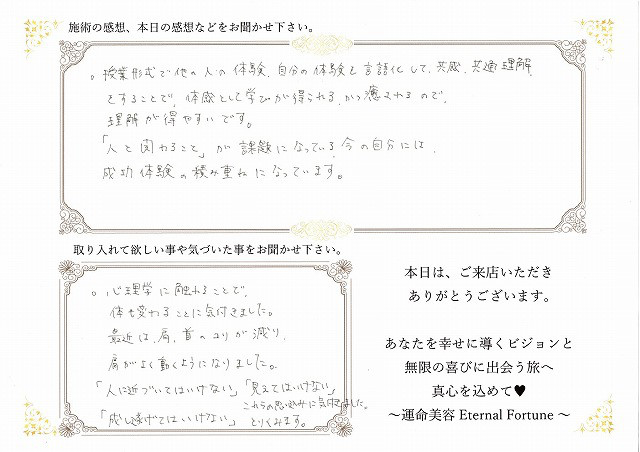 施術の感想、本日の感想などをお聞かせ下さい。
。授業形式で他の人の体験、自分の体験を言語化して、共感、共通理解
をすることで、体感として学びが得られる、かつ癒されるので、
理解が得やすいです。
「人と関わること」が課題になっている、今の自分には、
成功体験の積み重ねになっています。
取り入れて欲しい事や気づいた事をお聞かせ下さい。
。心理学に触れることで、
体も変わることに気付きました。
最近は、肩、首のコリが減り、
肩がよく動くようになりました。
「人に近づいてはいけない」「見えてはいけない」
「成し遂げてはいけない」これらの思い込みに気付きました。
とりくみます。
本日は、ご来店いただき
ありがとうございます。
あなたを幸せに導くビジョンと
無限の喜びに出会う旅へ
真心を込めて♥
～運命美容 Eternal Fortune ～